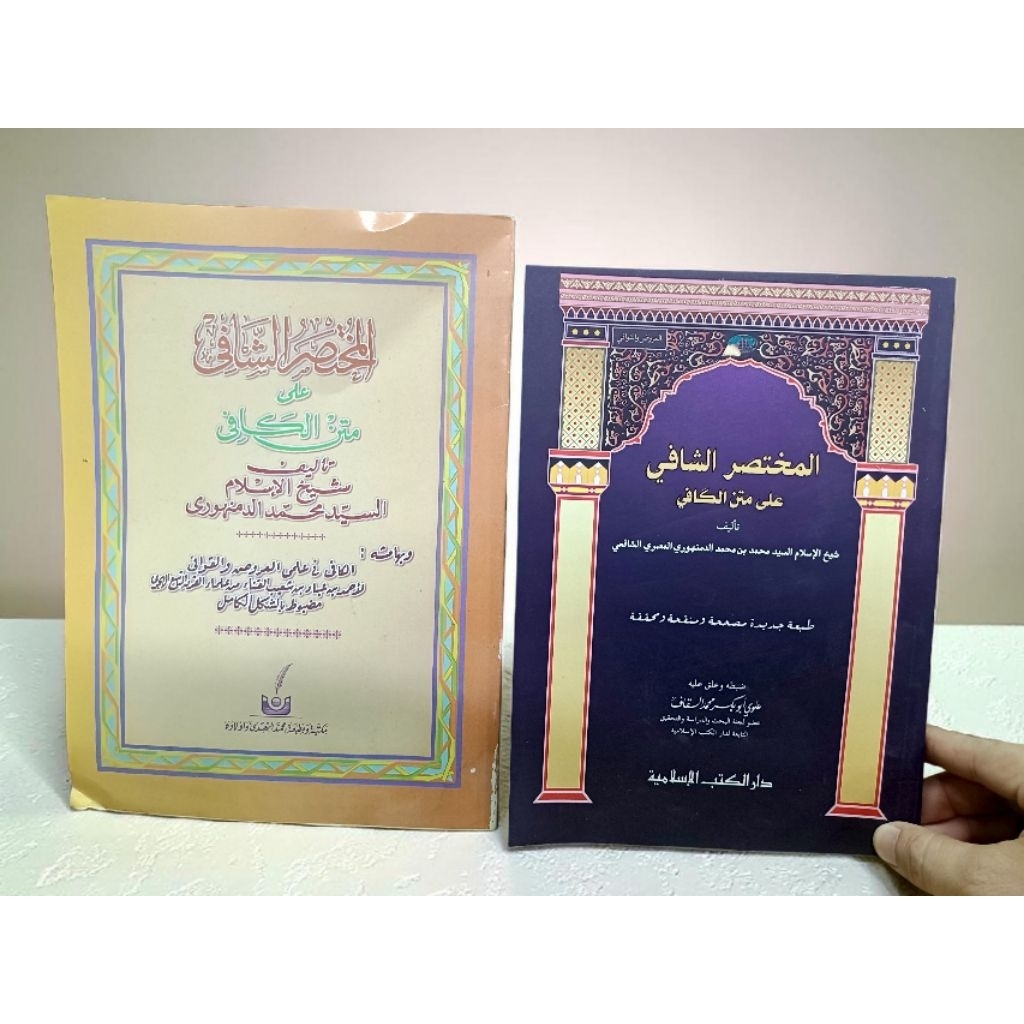 المختصر الشافي
على
متن الكافي
تأليف
شيخ الإسلام
السيد محمد الدمنهوري
وبهامشه :
الكافي في علمي العروض والقوافي
لأحمد بن عباد بن شعيب القناء من علماء القرن التاسع الهجري
مضبوط بالشكل الكامل
مكتبة ومطبعة محمد النهدي وأولاده
العروض والقوافي
المختصر الشافي
على متن الكافي
تأليف
شيخ الإسلام السيد محمد بن محمد الدمنهوري المصري الشافعي
طبعة جديدة مصححة ومنقحة ومحققة
ضبطه وعلق عليه
علوي أبو بكر محمد السقاف
عضو لجنة البحث والدراسة والتحقيق
التابعة لدار الكتب الإسلامية
دار الكتب الإسلامية